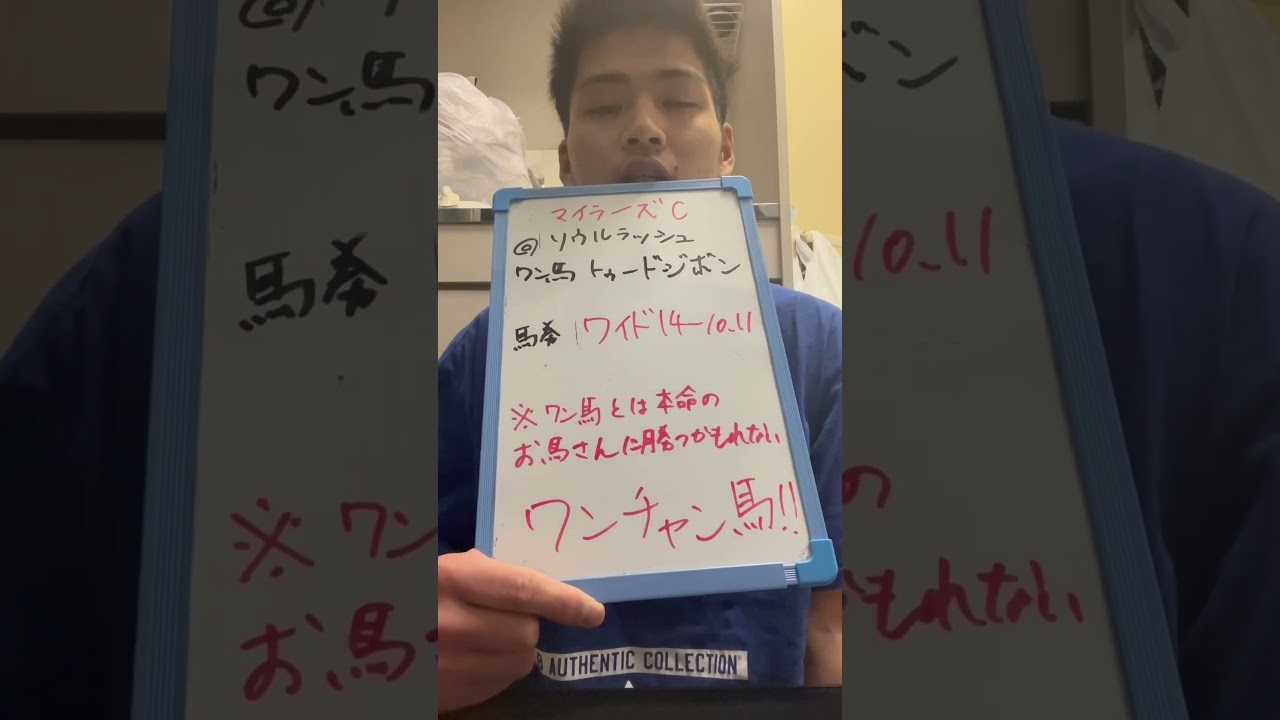 マイラーズC
◎ソウルラッシュ
ワン馬 トゥードジボン
馬券 ワイド14-10.11
※ワン馬とは本命の
お馬さんに勝つかもれない
ワンチャン馬!!
AUTHENTIC COLLECTION